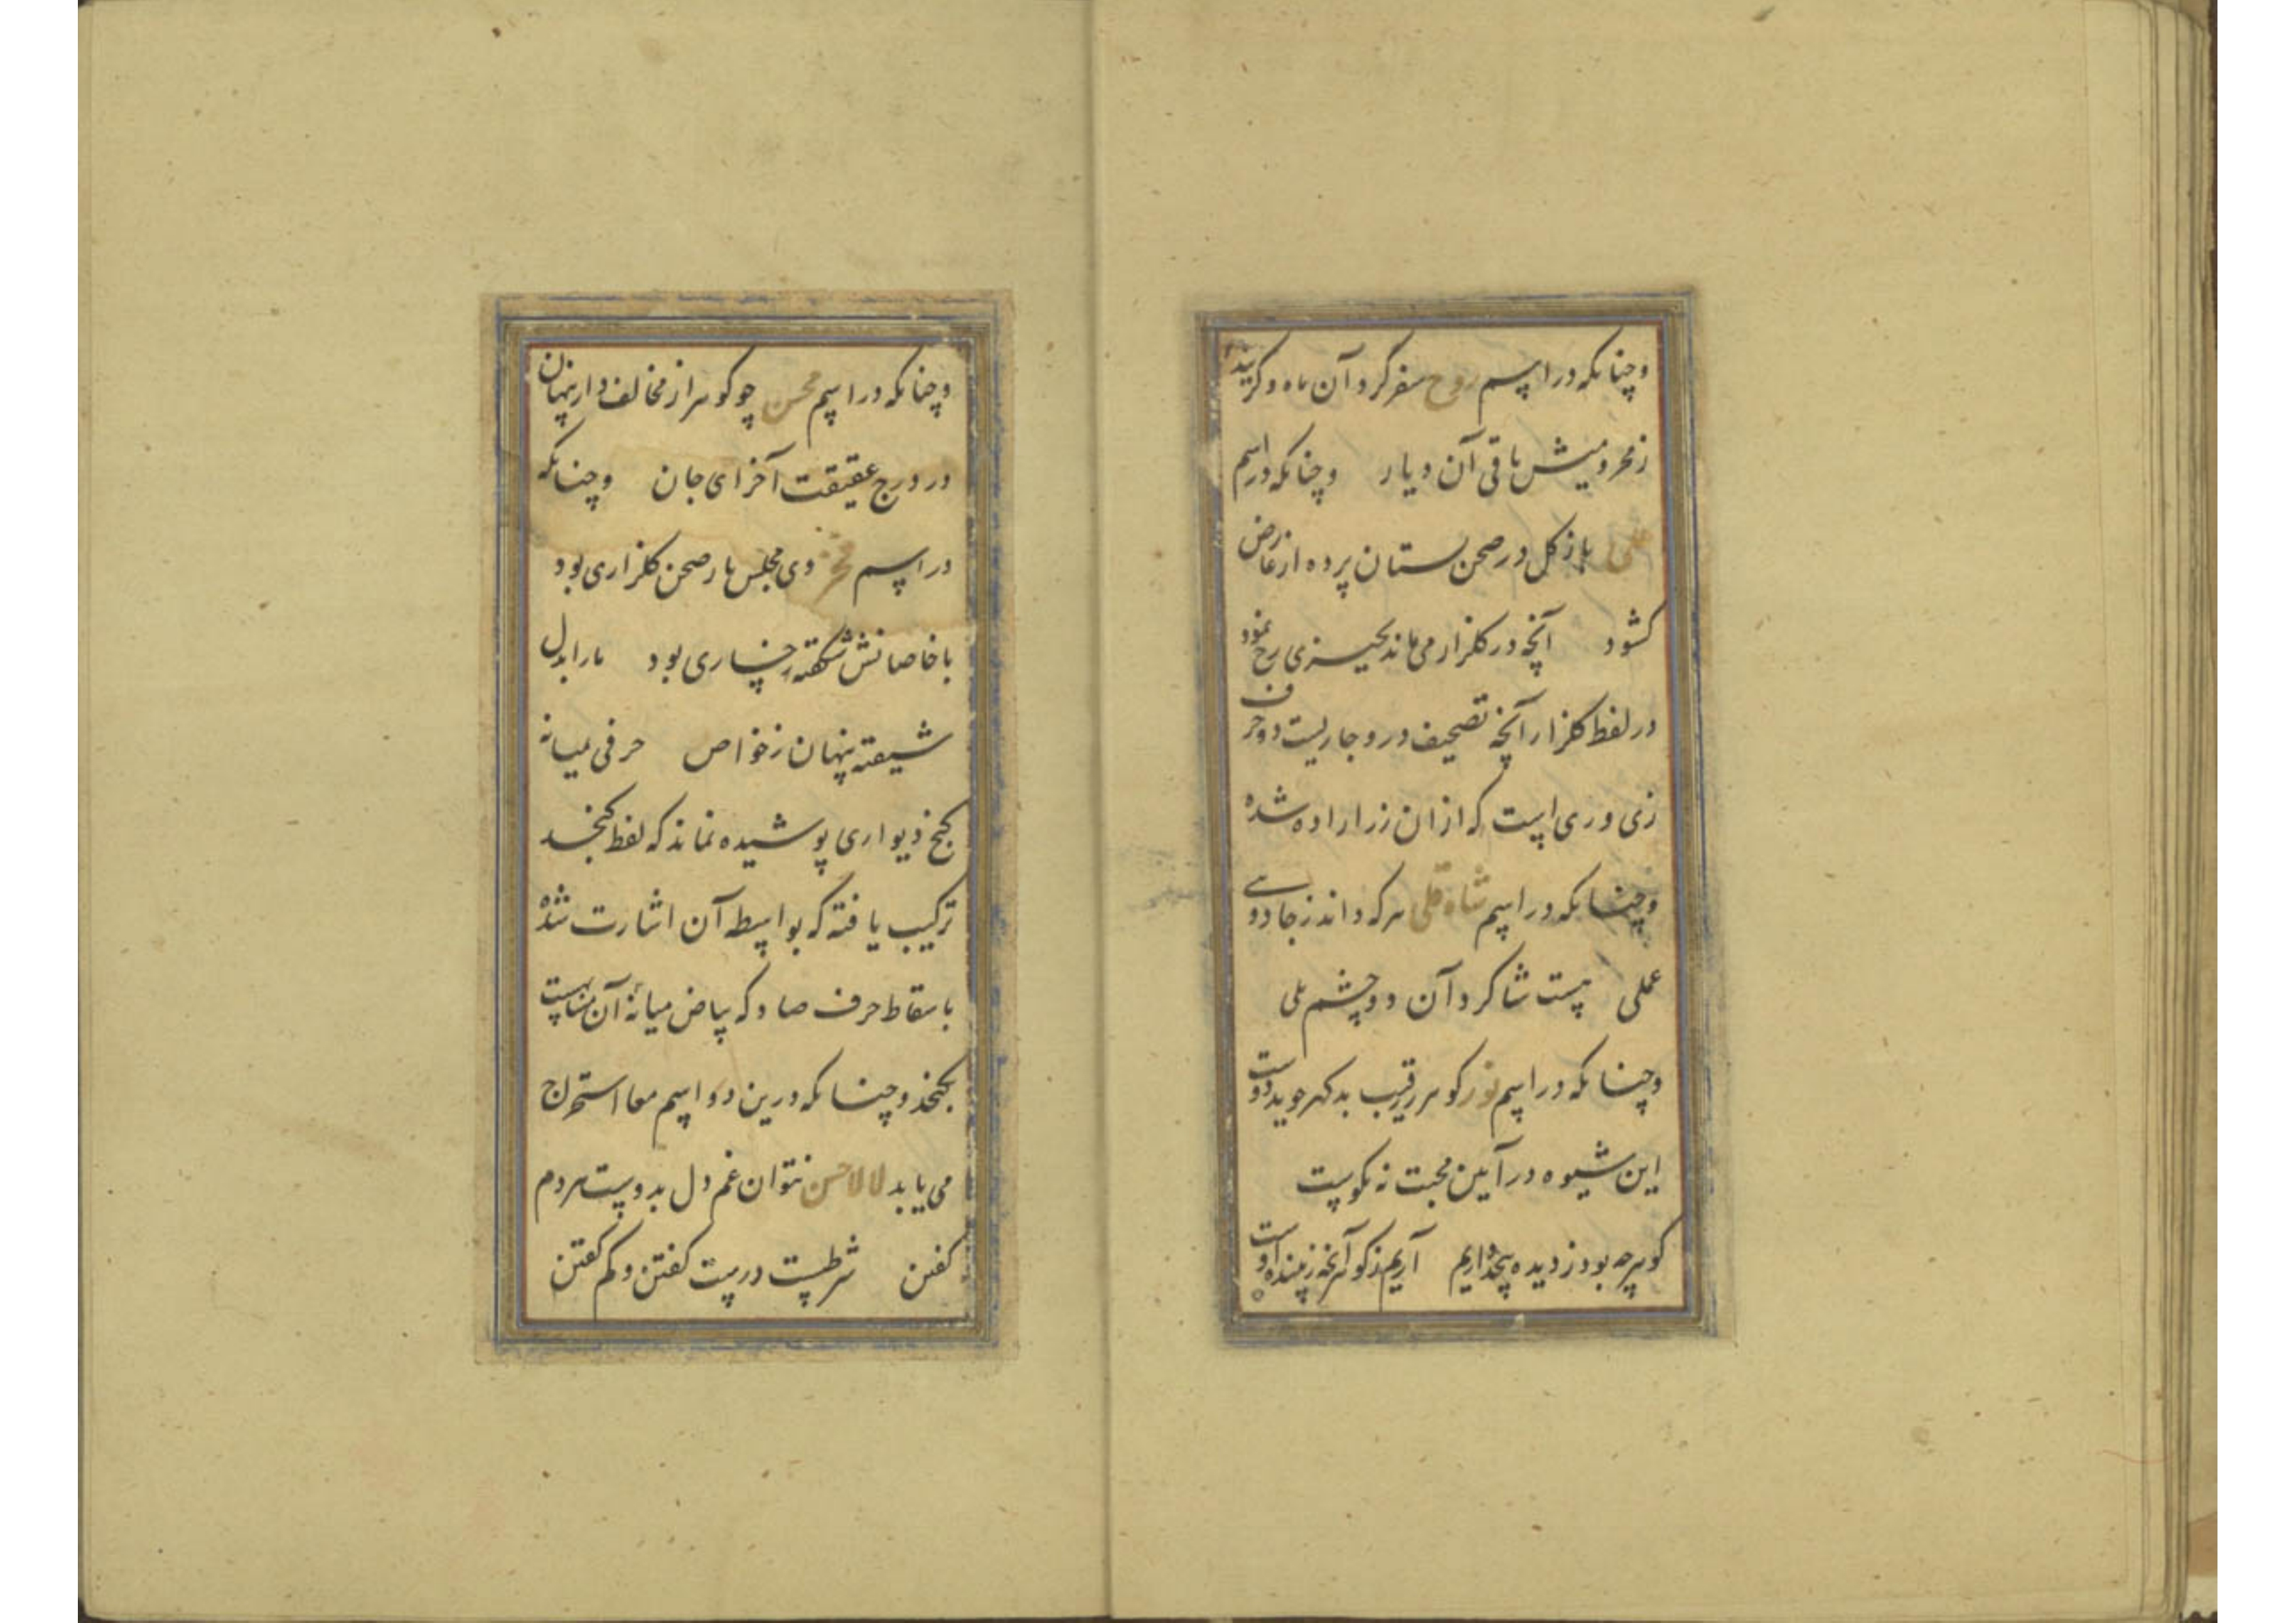 وچنانکه در اسم روح سفر کرد آن ماه و کریید
ز محرومیش باقی آن دیار وچنانکه در اسم
علی باز کل در صحن بستان پرده از عارض
کشود آنچه در کلزار می‌ماند بچیزی رخ نمود
در لفظ کلزار آنچه تصحیف درو جاریست دو حرف
زی و ری است که ازان زر اراده شده
وچنانکه در اسم شاه قلی هرکه داند ز جادوسی
عملی هست شاکرد آن دو چشم بلی
وچنانکه در اسم نور کوهر رقیب بدکهر جوید دوست
این شیوه در آیین محبت نه نکوست
کوهرچه بود ز دیده آریم ز کوهر آنچه زیبنده اوست
وچنانکه در اسم محسن چو کوهر از مخالف دار پنهان
در درج عقیقت آخر ای جان وچنانکه
در اسم فخر دی مجلس ما رصحن کلزاری بود
با خاصانش شکفته رخساری بود ما را بدل
شیفته پنهان ز خواص حرفی بمیانه
کنج دیواری پوشیده نماند که لفظ کنجد
ترکیب یافته که بواسطه آن اشارت شده
باسقاط حرف صاد که بیاض میانه آن مناسبست
بکنجد وچنانکه درین دو اسم معا استخراج
می‌یابد لالا حسن نتوان غم دل بدوست هردم
کفتن شرطست درست کفتن و کم کفتن